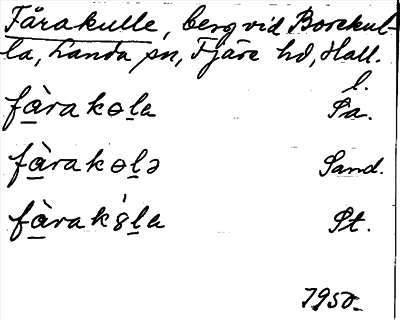 Färakulle, berg vid Borekul-
la, Landa sn, Fjäre hd, Hall.
l.
fàrakɵla Pa.
fàrakɵlə Sand.
fàrak8́la St.
1950.